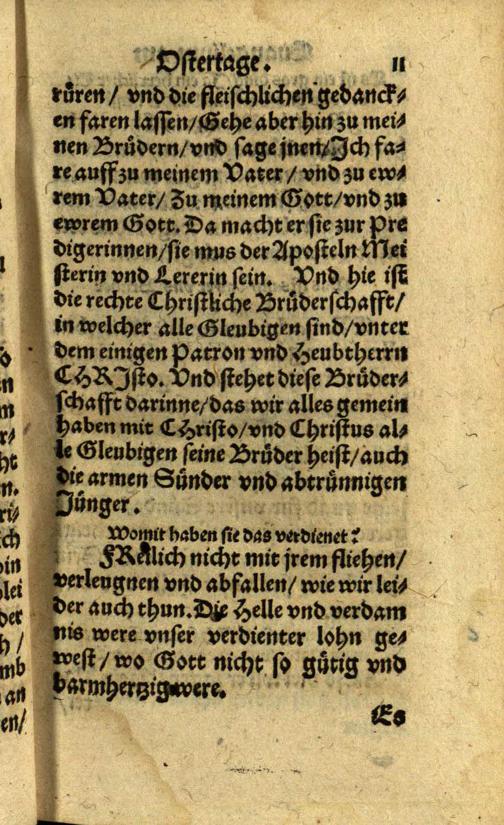 Ostertage. 11
rüren / vnd die fleischlichen gedanck⸗
en faren lassen/Gehe aber hin zu mei⸗
nen Brüdern/vnd sage jnen/Ich fa⸗
re auff zu meinem Vater / vnd zu ew⸗
rem Vater/ Zu meinem Gott/vnd zu
ewrem Gott. Da macht er sie zur Pre
digerinnen/sie mus der Aposteln Mei
sterin vnd Lererin sein. Vnd hie ist
die rechte Christliche Brüderschafft/
in welcher alle Gleubigen sind/vnter
dem einigen Patron vnd Heubtherrn
CHRIsto. Vnd stehet diese Brüder⸗
schafft darinne/das wir alles gemein
haben mit CHristo/vnd Christus al⸗
le Gleubigen seine Brüder heist/auch
die armen Sünder vnd abtrünnigen
Jünger.
Womit haben sie das verdienet?
FReilich nicht mit jrem fliehen/
verleugnen vnd abfallen/ wie wir lei⸗
der auch thun. Die Helle vnd verdam
nis were vnser verdienter lohn ge⸗
west/ wo Gott nicht so gütig vnd
barmhertzig were.
Es